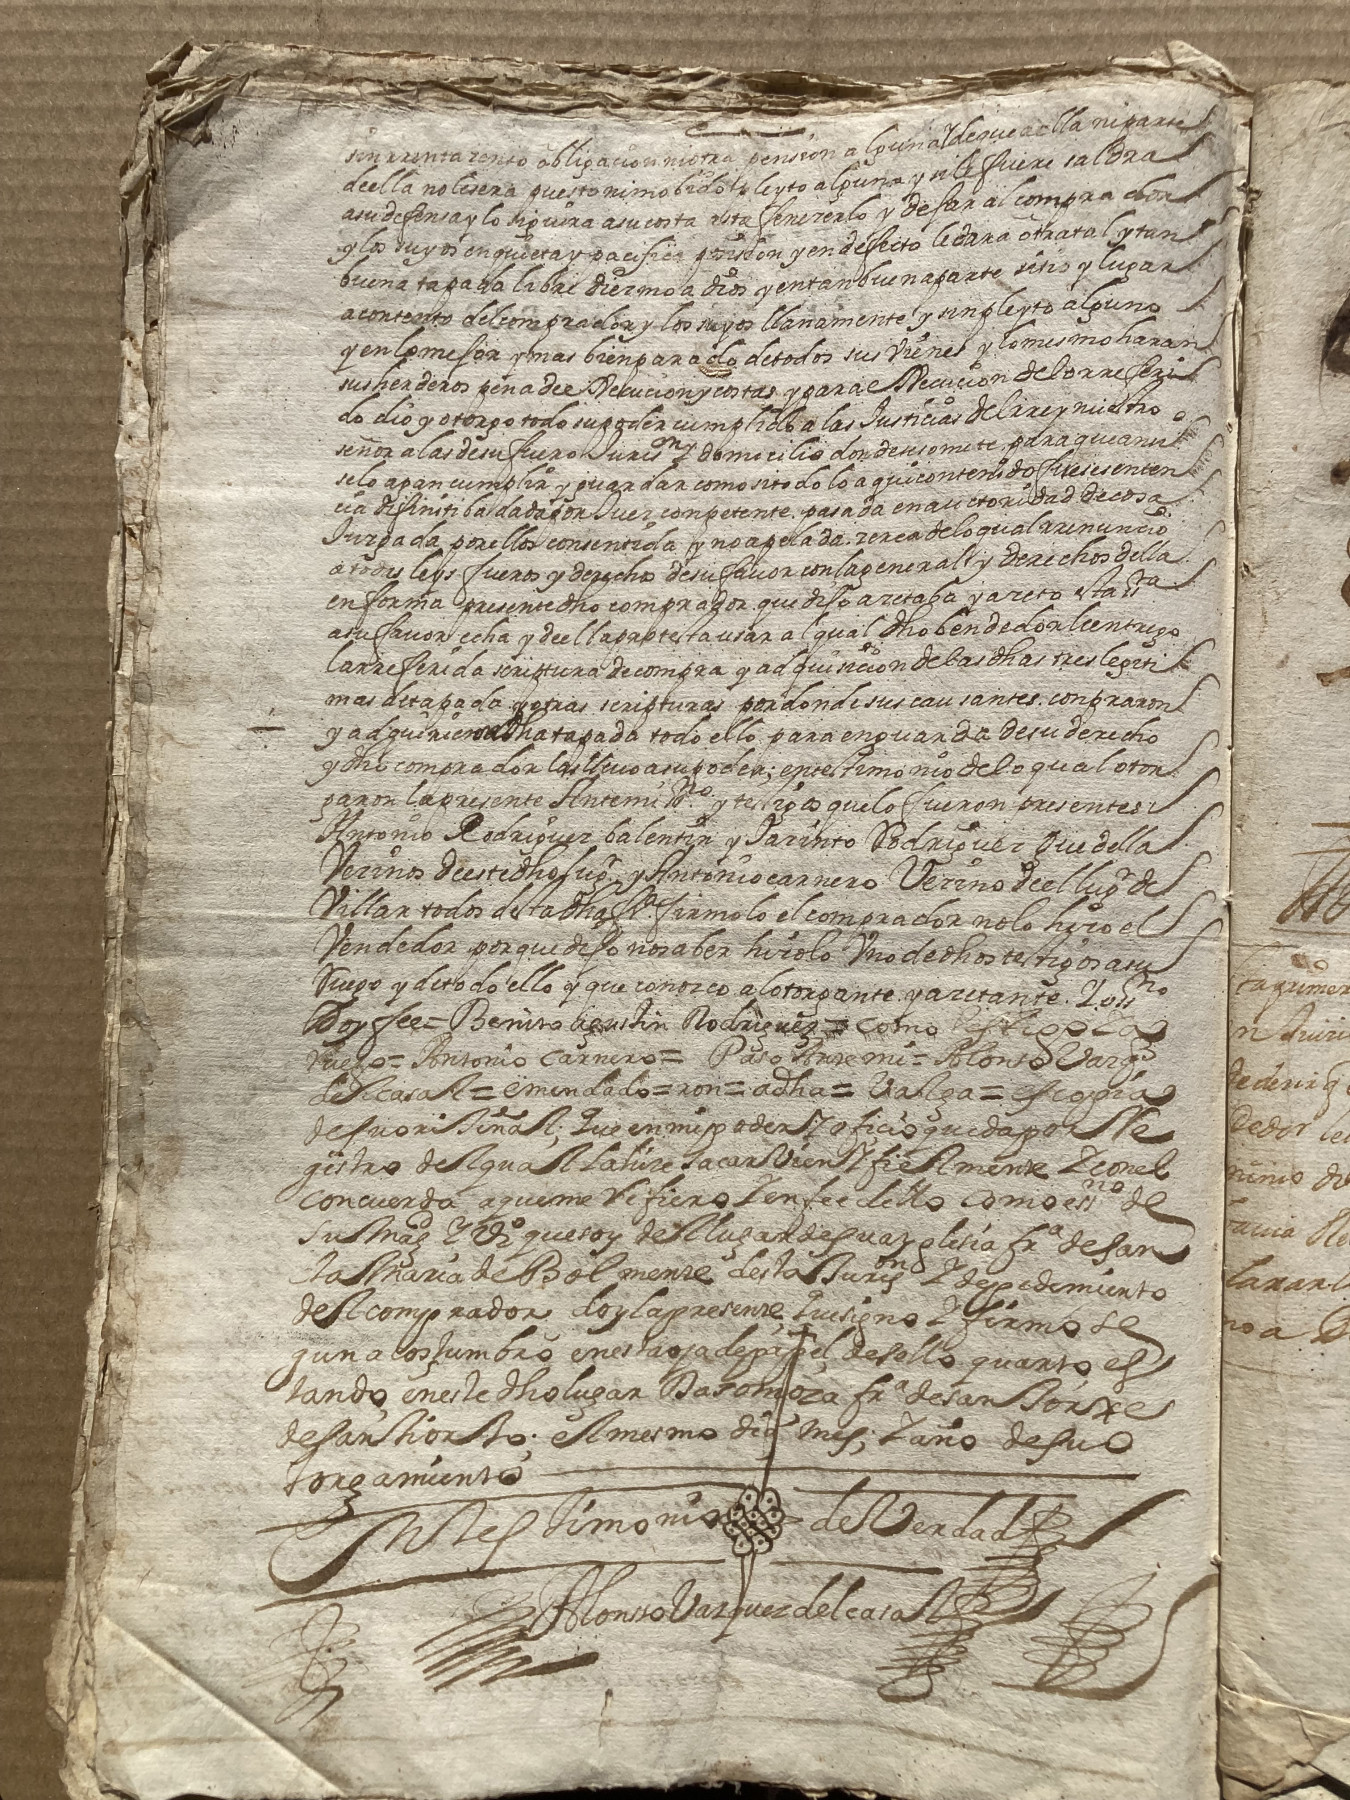 sin rrenta zenso obligacion ni otra pension alguna y de que a ella ni parte
de ella no le sera puesto ni mobido pleyto alguno y si le fuere saldra
a su defensa y lo siguira a su costa asta fenezerlo y dejar al comprador
y los suyos en quieta y pacifica posision y en defecto le dara otra tal y tan
buena tapada libre diezmo a dios y en tan buena parte sitio y lugar
a contento del comprador y los suyos llanamente y sin pleyto alguno
y en lo mejor y mas bien parado de todos sus vienes y lo mesmo haran
sus herderos pena de execucion y costas y para execucion de lo rreferi
do dio y otorgo todo su poder cumplido a las Justicias del rrey nuestro
señor a las de su fuero Jurison y domicilio donde se somete para que ansi
se lo agan cumplir y guardar como si todo lo aqui contenido fuese senten
cia difinitiba dada por Juez conpetente pasada en auctoridad de cosa
Juzgada por ellos consentida y no apelada zerca de lo qual rrenuncio
a todas leys fueros y derechos de su favor con la general y derechos della
en forma presente dho comprador que dijo azetaba y azeto esta essra
a su favor echa y de ella protesta usar al qual dho bendedor le entrego
la rreferida scriptura de compra y adquisicion de las dhas tres legiti
mas de tapada y otras scripturas por donde sus causantes conpraron
y adquirieron dha tapada todo ello para en guarda de su derecho
y dho comprador las llevo a su poder; en testimonio de lo qual otor
garon la presente Antemi ssno y testigos que lo fueron presentes:
Antonio Rodriguez balentin y Jazinto Rodriguez Quedella
Vezinos de este dho lugr y Antonio carnero Vezino de el lugr de
Villar todos desta dha fra firmolo el comprador no lo hizo el
Vendedor porque dijo no saber hizolo Uno de dhos testigos a su
Ruego y de todo ello y que conozco al otorgante y azetante Yo ssno
Doy fee = Benito agustin Rodriguez = como testigo y a
ruego = Antonio Carnero = Paso Ante mi = Alonso Vazqs
del casal = emendado = ron = a dha = Valga = es copia
de su orisinal; Que en mi poder Y oficio queda por Re
gistro del qual la hize sacar vien Y fielmente Y con el
concuerda a que me refiero Y en fee dello como essno de
su Magd Y Vo que soy del lugar de su a yglesia fra de san
ta Maria de Bolmente desta Jurison Y de pedimiento
del comprador doy la presente Que signo Y firmo se
gun acostumbro en esta oja de papel de sello quarto es
tando en este dho lugar fra de san Jorxe
de el mesmo dia mes; Y año de su o
torgamiento
En testimonio de Verdad
Alonso Vazquez del casal